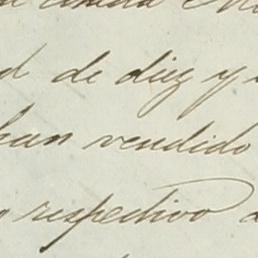 d de diez y
han vendido
respectivo